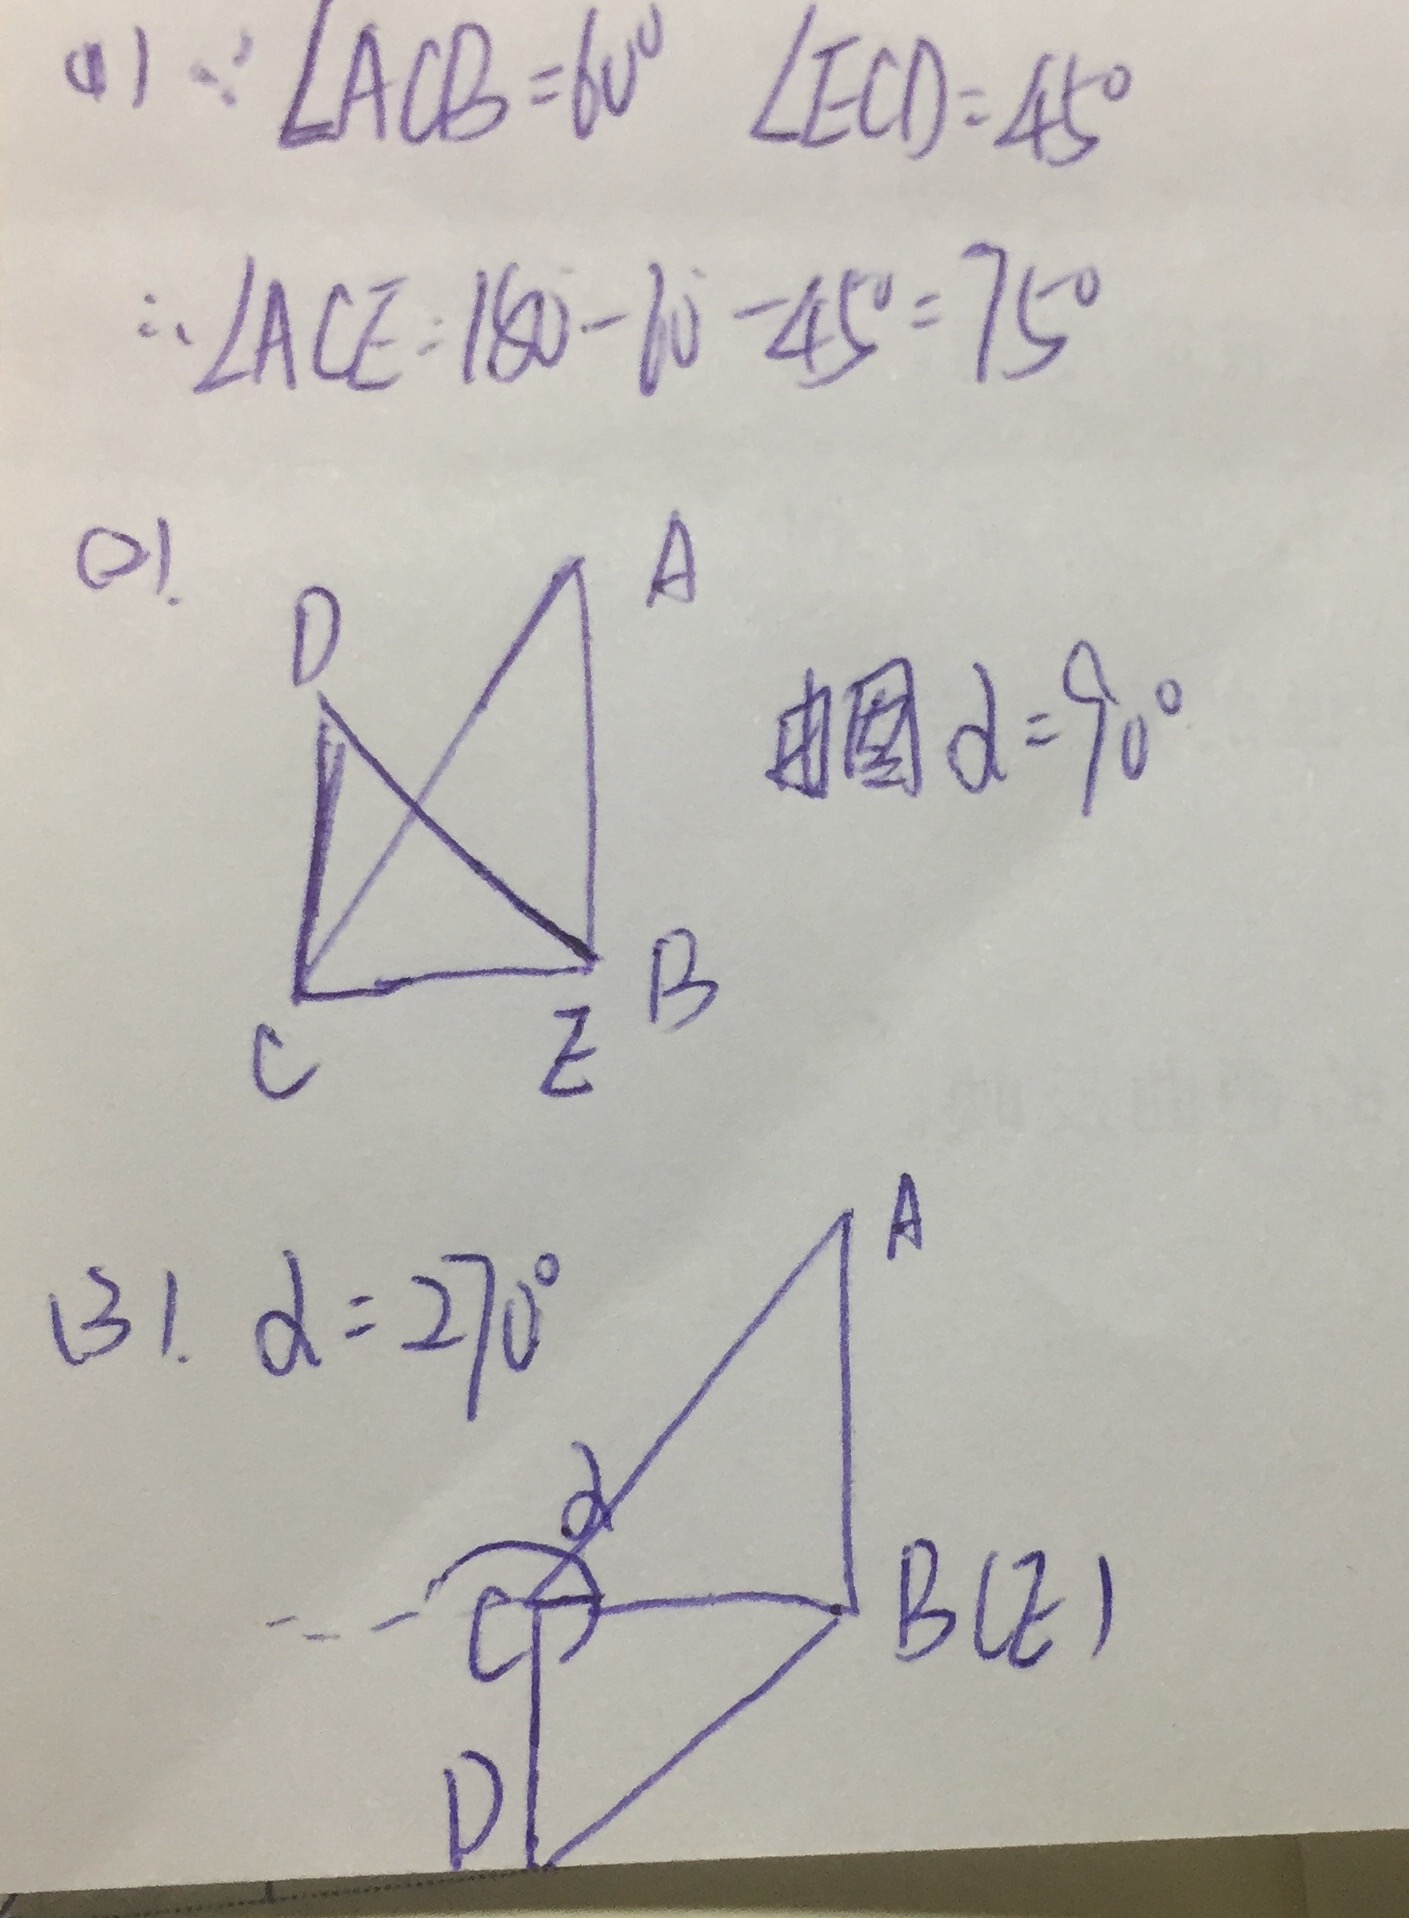 (1) ∵ ∠ACB=60° ∠ECD=45°
∴ ∠ACE=180°-60°-45°=75°
(2).
D
A
由图 α=90°
C
E
B
A
(3). α=270°
α
C
B(E)
D